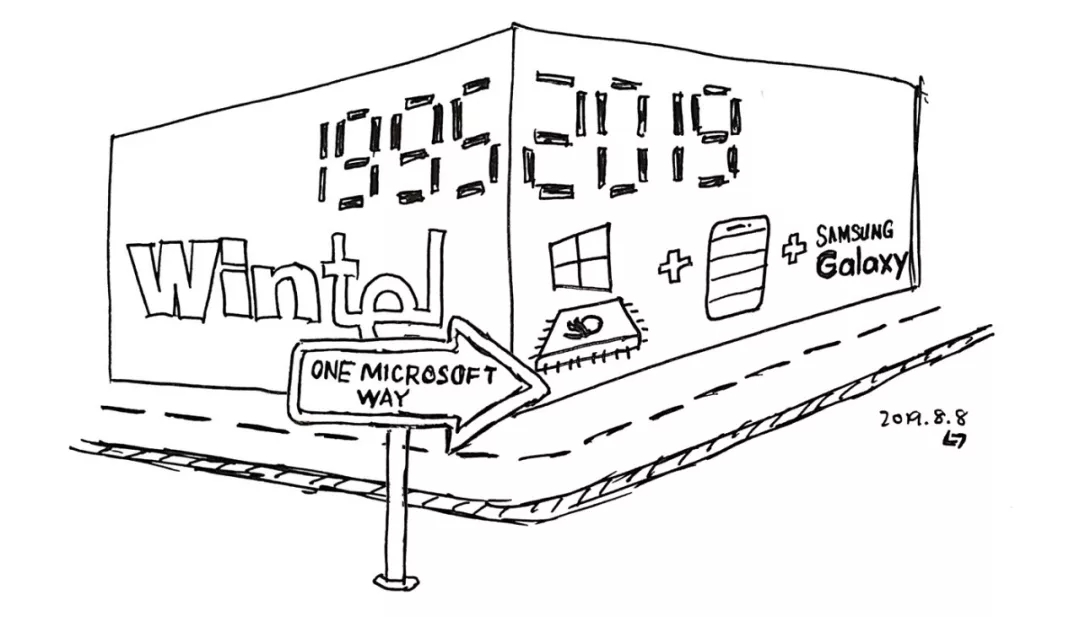 1995
2019
Wintel
SAMSUNG
Galaxy
ONE MICROSOFT
WAY
2019.8.8